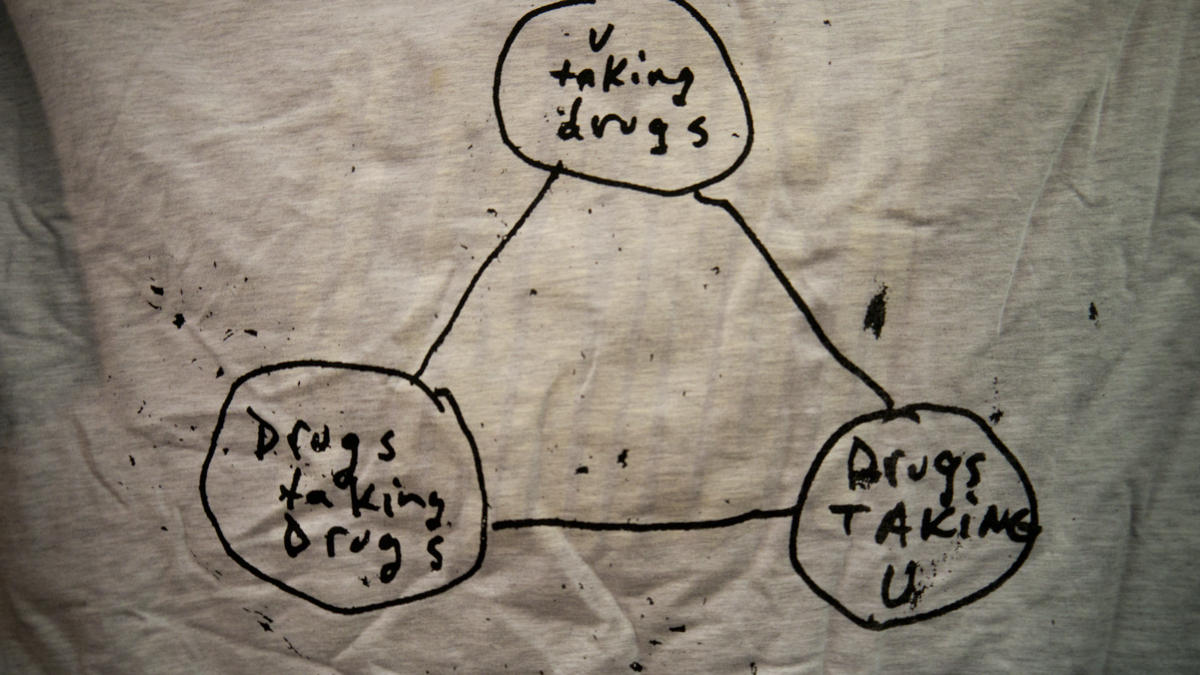 U
taking
drugs
Drugs
taking
Drugs
Drugs
TAKiNG
U